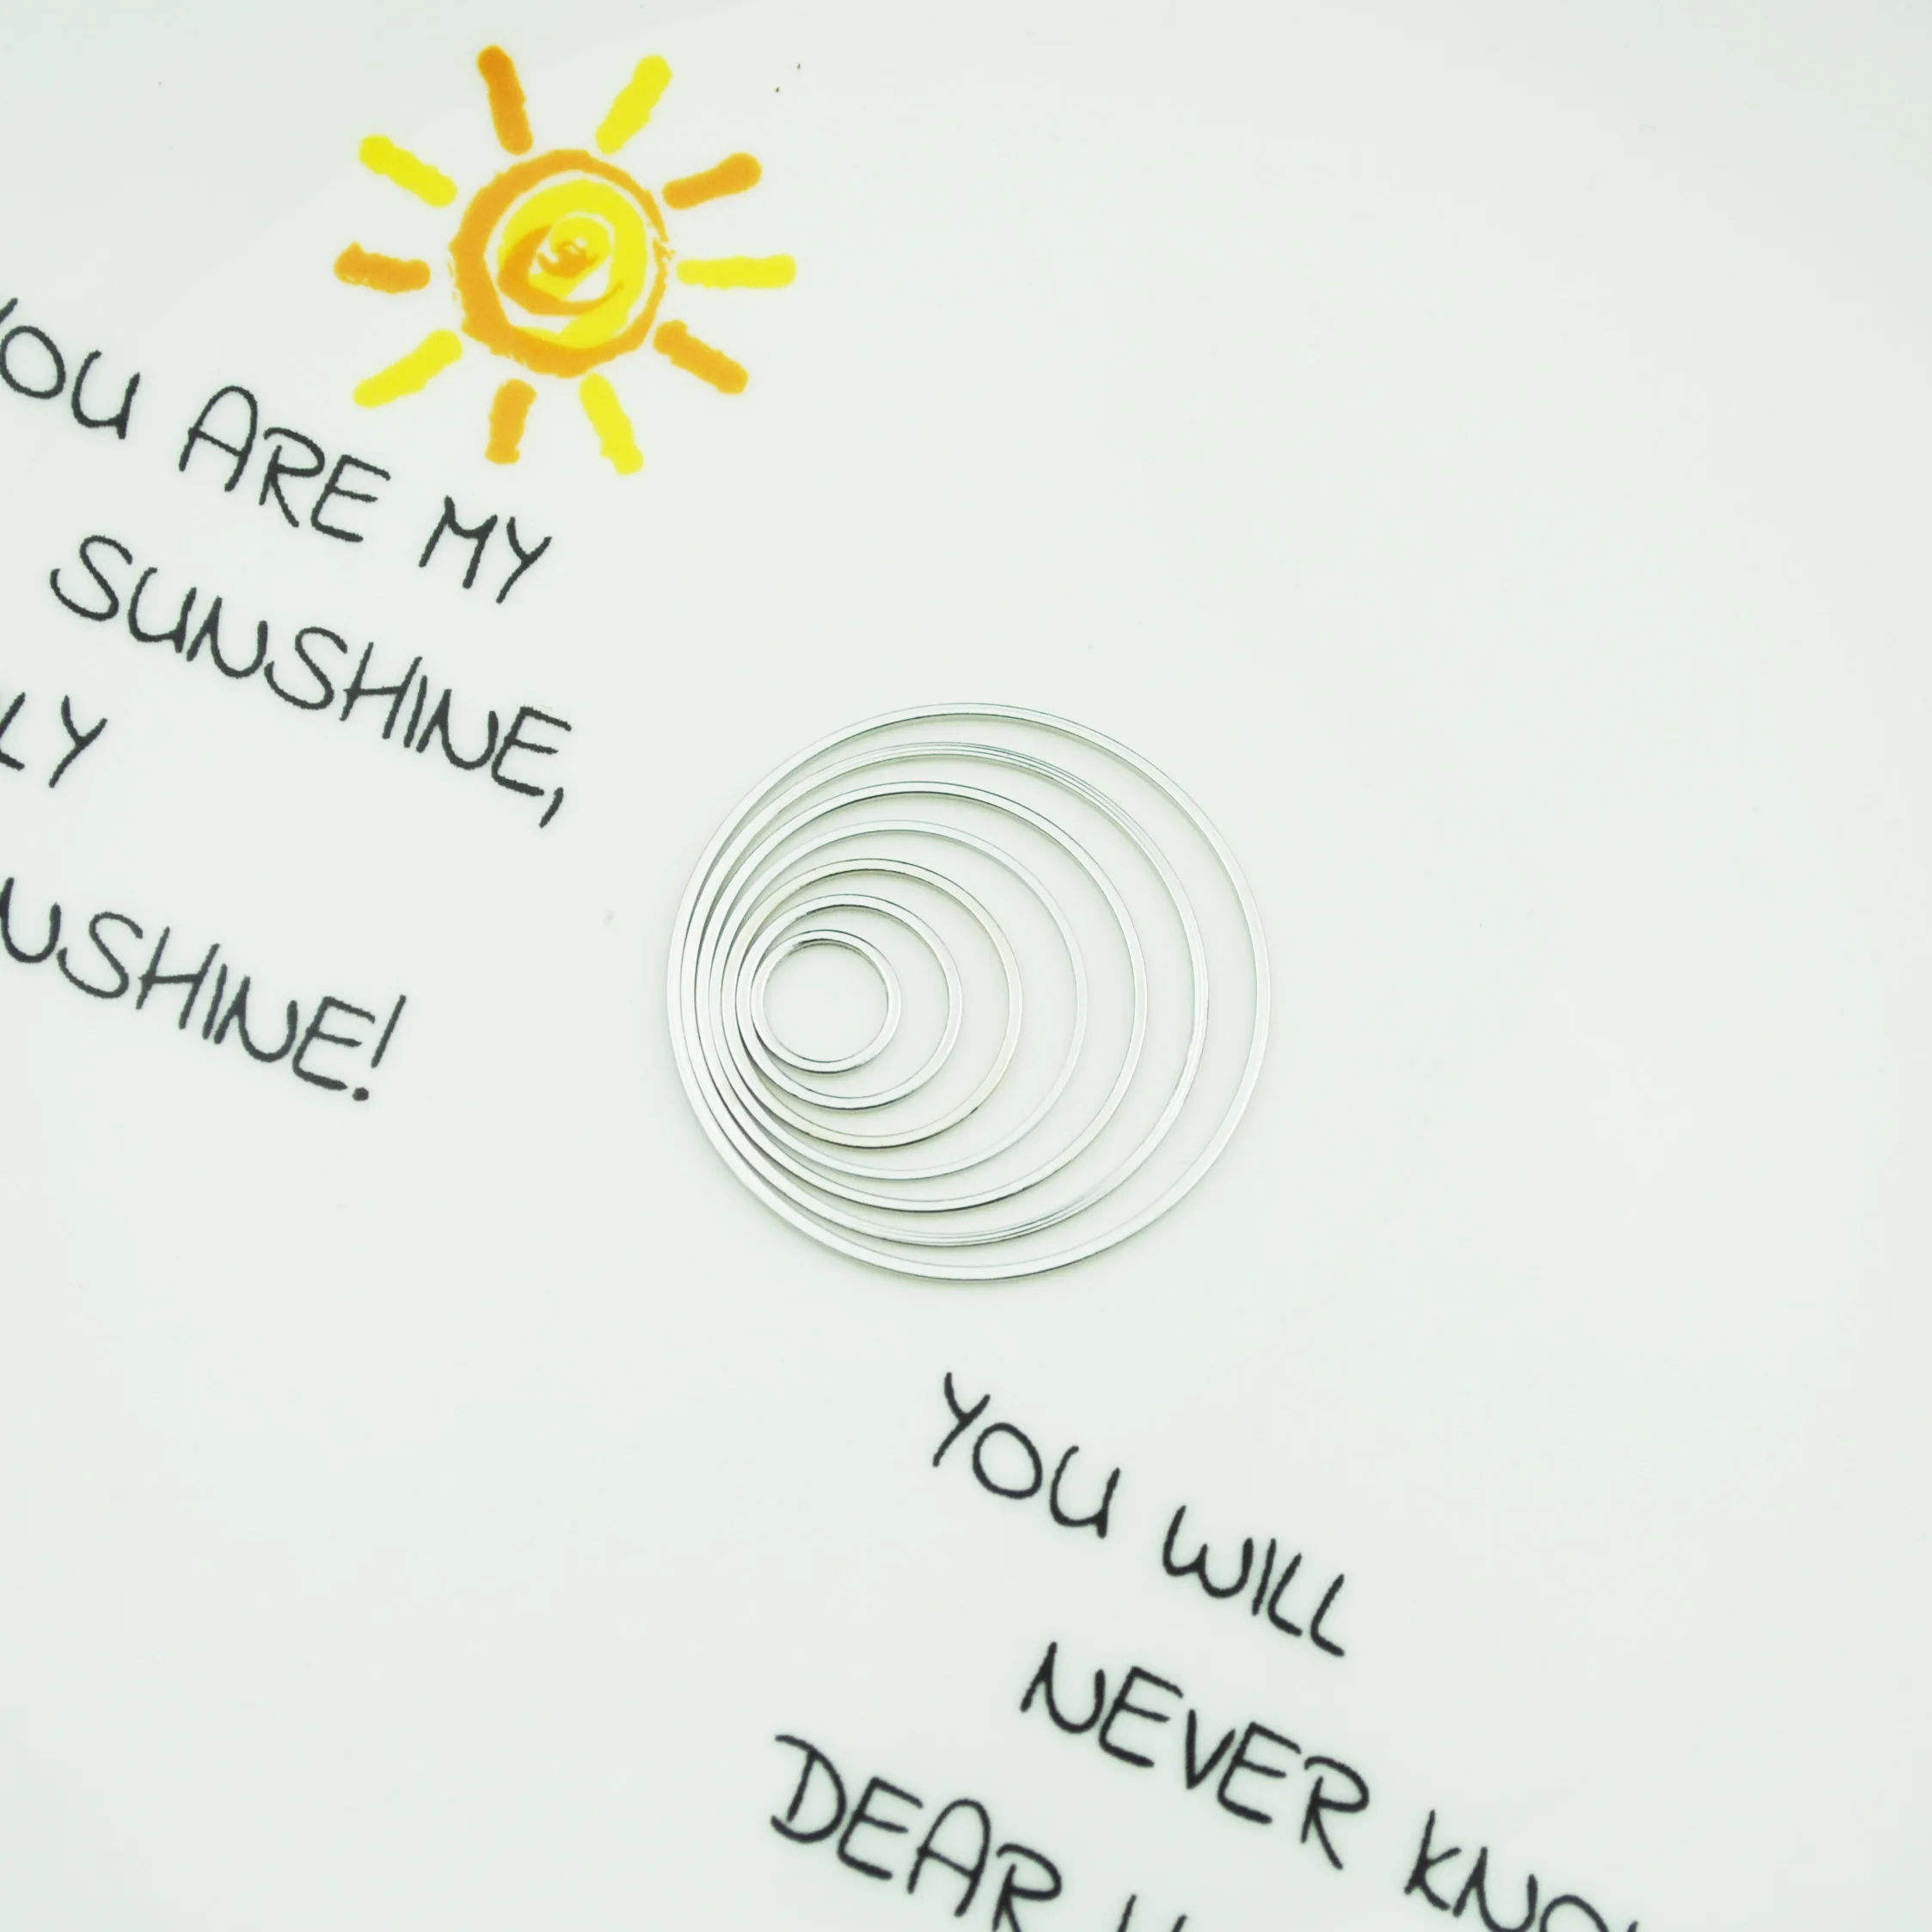 YOU ARE MY
SUNSHINE,
LY
USHINE!
YOU WILL
NEVER KNO
DEAR